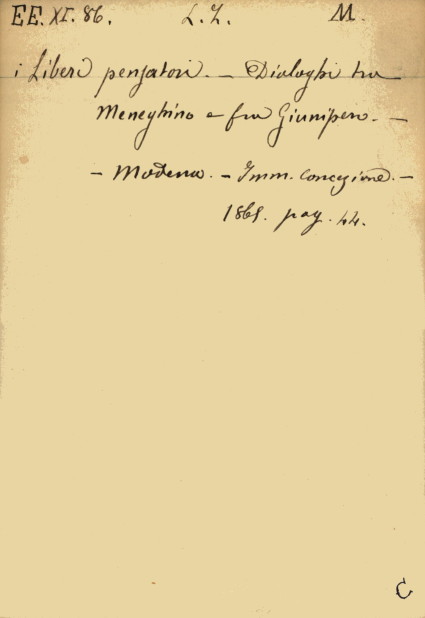 EE. XI. 86. L. Z. M.
i Liberi pensatori. — Dialoghi tra
Meneghino e fra Giunipero. —
— Modena. — Imm. Concezione. —
186 . pag. 44.
C